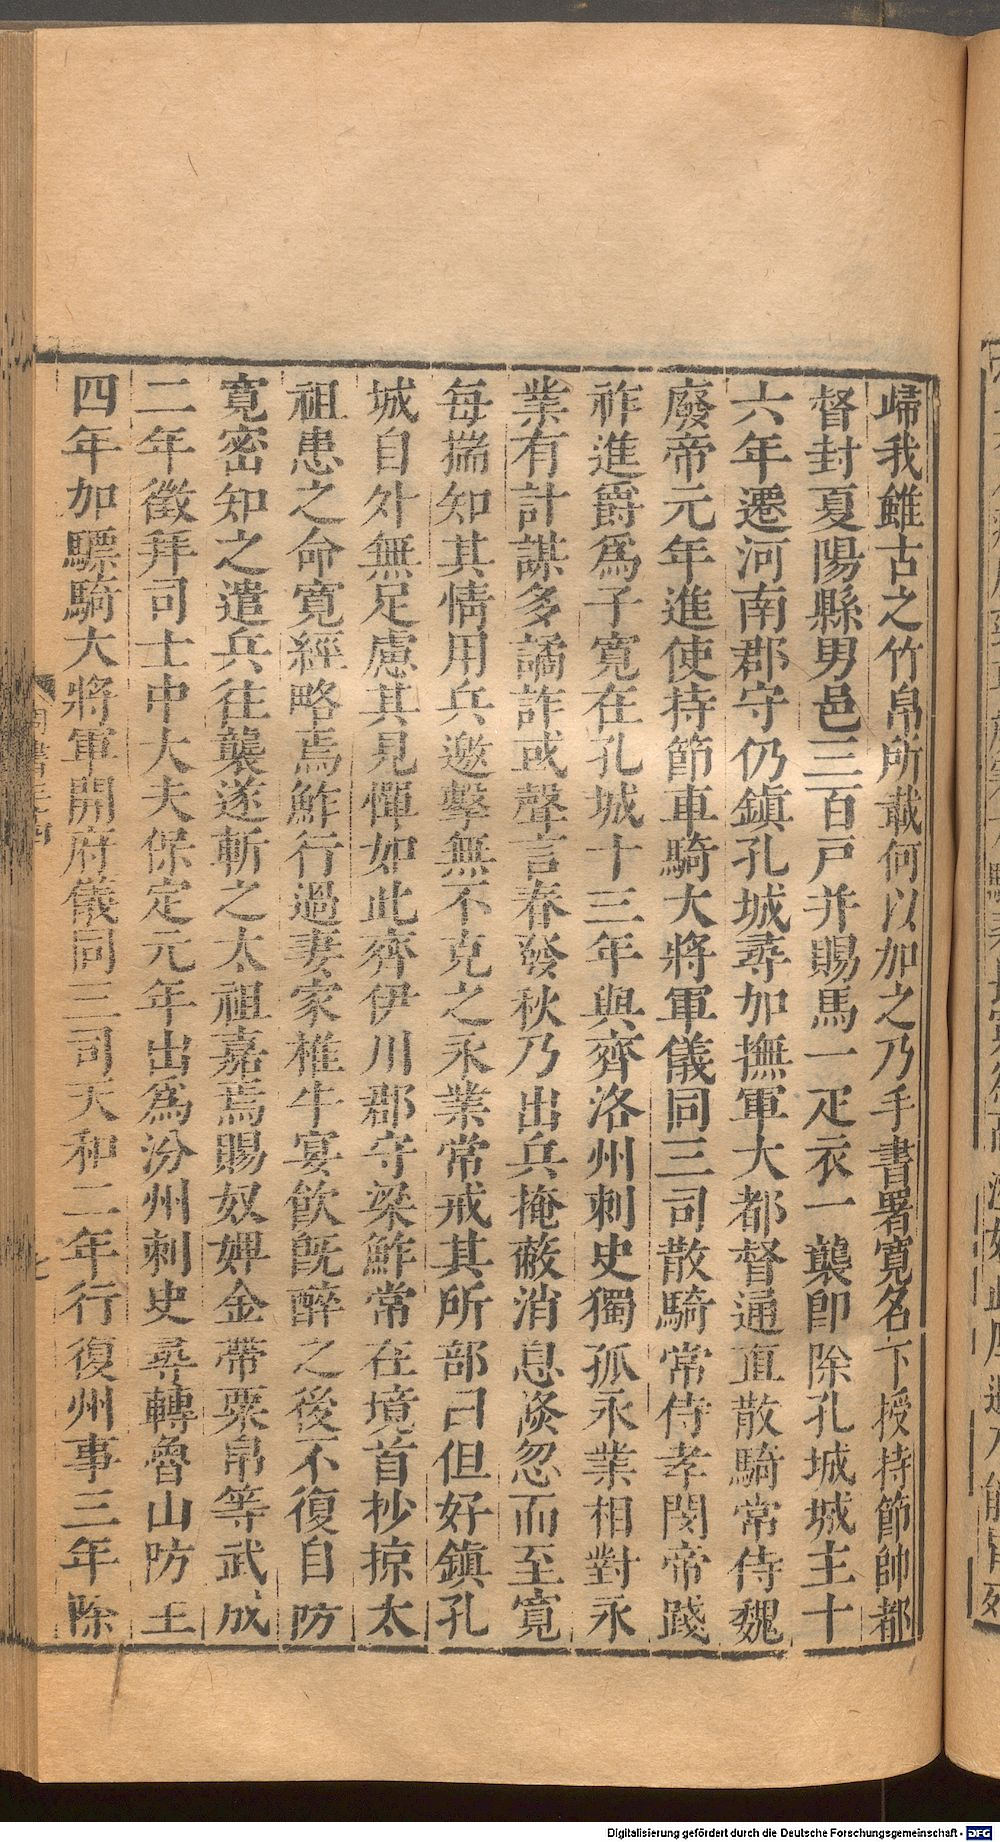 歸我雖古之竹帛所載何以加之乃手書署寛名下授持節帥都
督封夏陽縣男邑三百戸并賜馬一疋衣一襲卽除孔城城主十
六年遷河南郡守仍鎮孔城尋加撫軍大都督通直散騎常侍魏
廢帝元年進使持節車騎大將軍儀同三司散騎常侍孝閔帝踐
祚進爵爲子寛在孔城十三年與齊洛州刺史獨孤永業相對永
業有計謀多譎詐或聲言春發秋乃出兵掩蔽消息倐忽而至寛
每揣知其情用兵邀擊無不克之永業常戒其所部曰但好鎮孔
城自外無足慮其見憚如此齊伊川郡守梁鮓常在境首抄掠太
祖患之命寛經略焉鮓行過妻家椎牛宴飲旣醉之後不復自防
寛密知之遣兵往襲遂斬之太祖嘉焉賜奴婢金帶粟帛等武成
二年徵拜司士中大夫保定元年出爲汾州刺史尋轉魯山防主
四年加驃騎大將軍開府儀同三司天和二年行復州事三年除
Digitalisierung gefördert durch die Deutsche Forschungsgemeinschaft - DFG